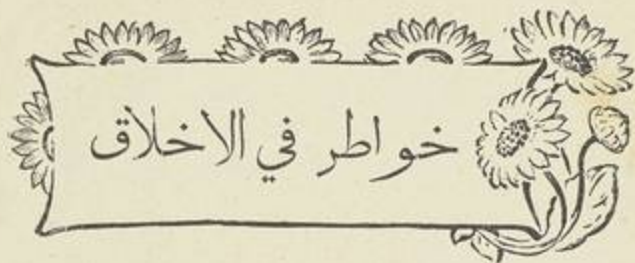 خواطر في الاخلاق